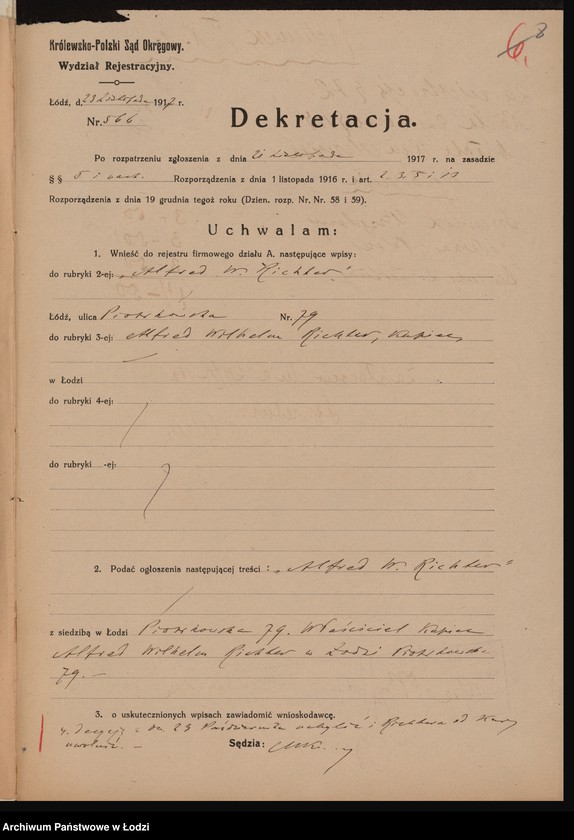 6. 8
Królewsko-Polski Sąd Okręgowy.
Wydział Rejestracyjny.
Łódź, d. 23 Listopada 1917 r.
Nr. 566
Dekretacja.
Po rozpatrzeniu zgłoszenia z dnia 21 Listopada 1917 r. na zasadzie
§ § 5 i nast. Rozporządzenia z dnia 1 listopada 1916 r. i art. 2, 3, 5 i
Rozporządzenia z dnia 19 grudnia tegoż roku (Dzien. rozp. Nr. Nr. 58 i 59).
Uchwalam:
1. Wnieść do rejestru firmowego działu A. następujące wpisy:
do rubryki 2-ej: „Alfred W. Richter"
Łódź, ulica Piotrkowska Nr. 79
do rubryki 3-ej: Alfred Wilhelm Richter, kupiec
w Łodzi
do rubryki 4-ej:
do rubryki -ej:
2. Podać ogłoszenia następującej treści: „Alfred W. Richter"
z siedzibą w Łodzi Piotrkowska 79. Właściciel kupiec
Alfred Wilhelm Richter w Łodzi Piotrkowska
79. –
3. o uskutecznionych wpisach zawiadomić wnioskodawcę.
4. Decyzję z dn. 29 Października uchylić i Richtera od kary
uwolnić. –
Sędzia:
Archiwum Państwowe w Łodzi